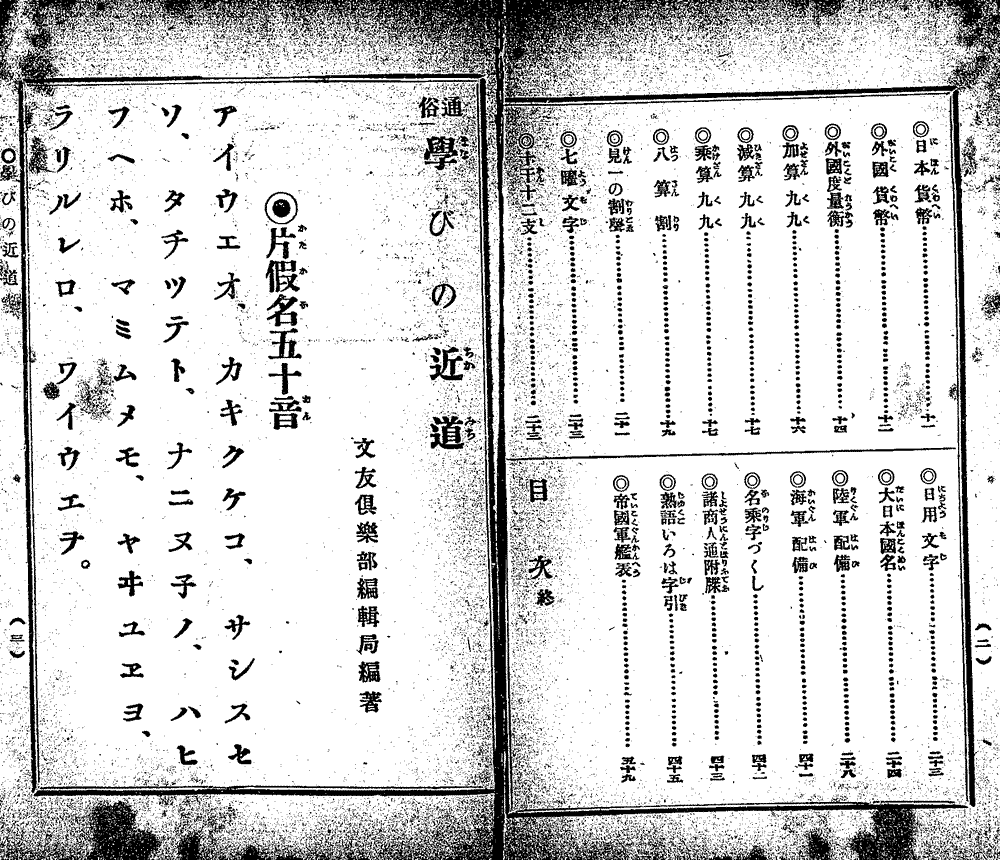 ◎日本貨幣………十一
◎外國貨幣………十二
◎外國度量衡………十四
◎加算九九………十六
◎減算九九………十七
◎乘算九九………十七
◎八算割………十九
◎見一の割聲………二十一
◎七曜文字………二十三
◎十干十二支………二十三
◎日用文字………二十三
◎大日本國名………二十四
◎陸軍配備………二十八
◎海軍配備………四十一
◎名乘字づくし………四十二
◎諸商人通附牒………四十三
◎熟語いろは字引………四十五
◎帝國軍艦表………五十九
目次終
(二)
通俗 學びの近道
文友倶樂部編輯局編著
◉片假名五十音
アイウエオ、カキクケコ、サシスセ
ソ、タチツテト、ナニヌ子ノ、ハヒ
フヘホ、マミムメモ、ヤヰユヱヨ、
ラリルレロ、ワイウエヲ。
○學びの近道
(三)